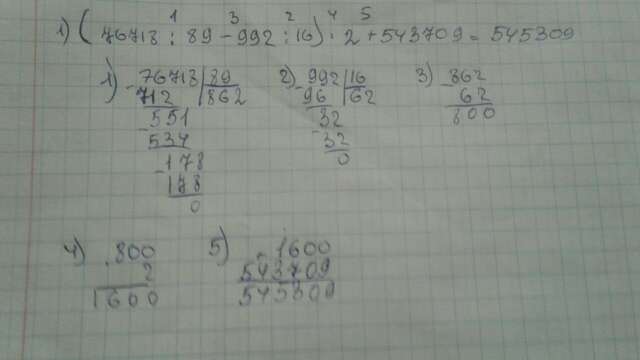 1 3 2 4 5
1) (76718 : 89 - 992 : 16) · 2 + 543709 = 545309
1) - 76718 | 89 2) - 992 | 16 3) - 862
712 | 862 96 | 62 62
- 551 - 32 800
534 32
- 178 0
178
0
4) · 800 5) + 1600
2 543709
1600 545309